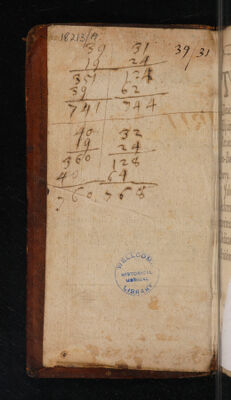 18213/A
39 31 39/31
19 24
351 124
39 62
741 744
40 32
19 24
360 128
40 64
760. 768
WELLCOME
HISTORICAL
MEDICAL
LIBRARY